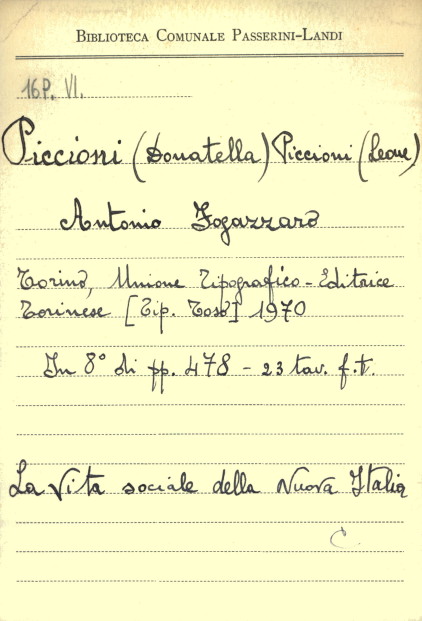 BIBLIOTECA COMUNALE PASSERINI-LANDI
16P. VI.
Piccioni (Donatella) Piccioni (Leone)
Antonio Fogazzaro
Torino, Unione Tipografico-Editrice
Torinese [Tip. Toso] 1970
In 8° di pp. 478 - 23 tav. f.t.
La Vita sociale della Nuova Italia
C.